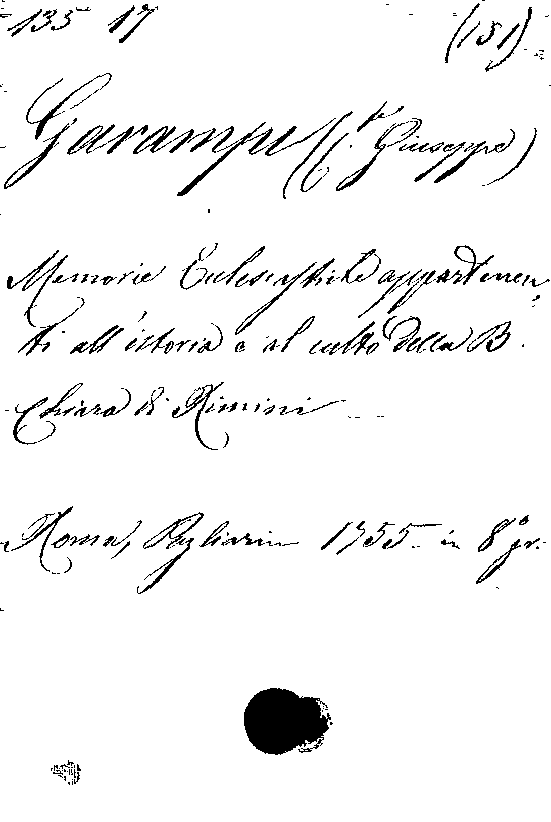 135 17 (151)
Garampi (C.te Giuseppe)
Memorie Ecclesiastiche appartenen-
ti all'istoria e al culto della B.
Chiara di Rimini
Roma, Pagliarini 1755. in 8° gr.